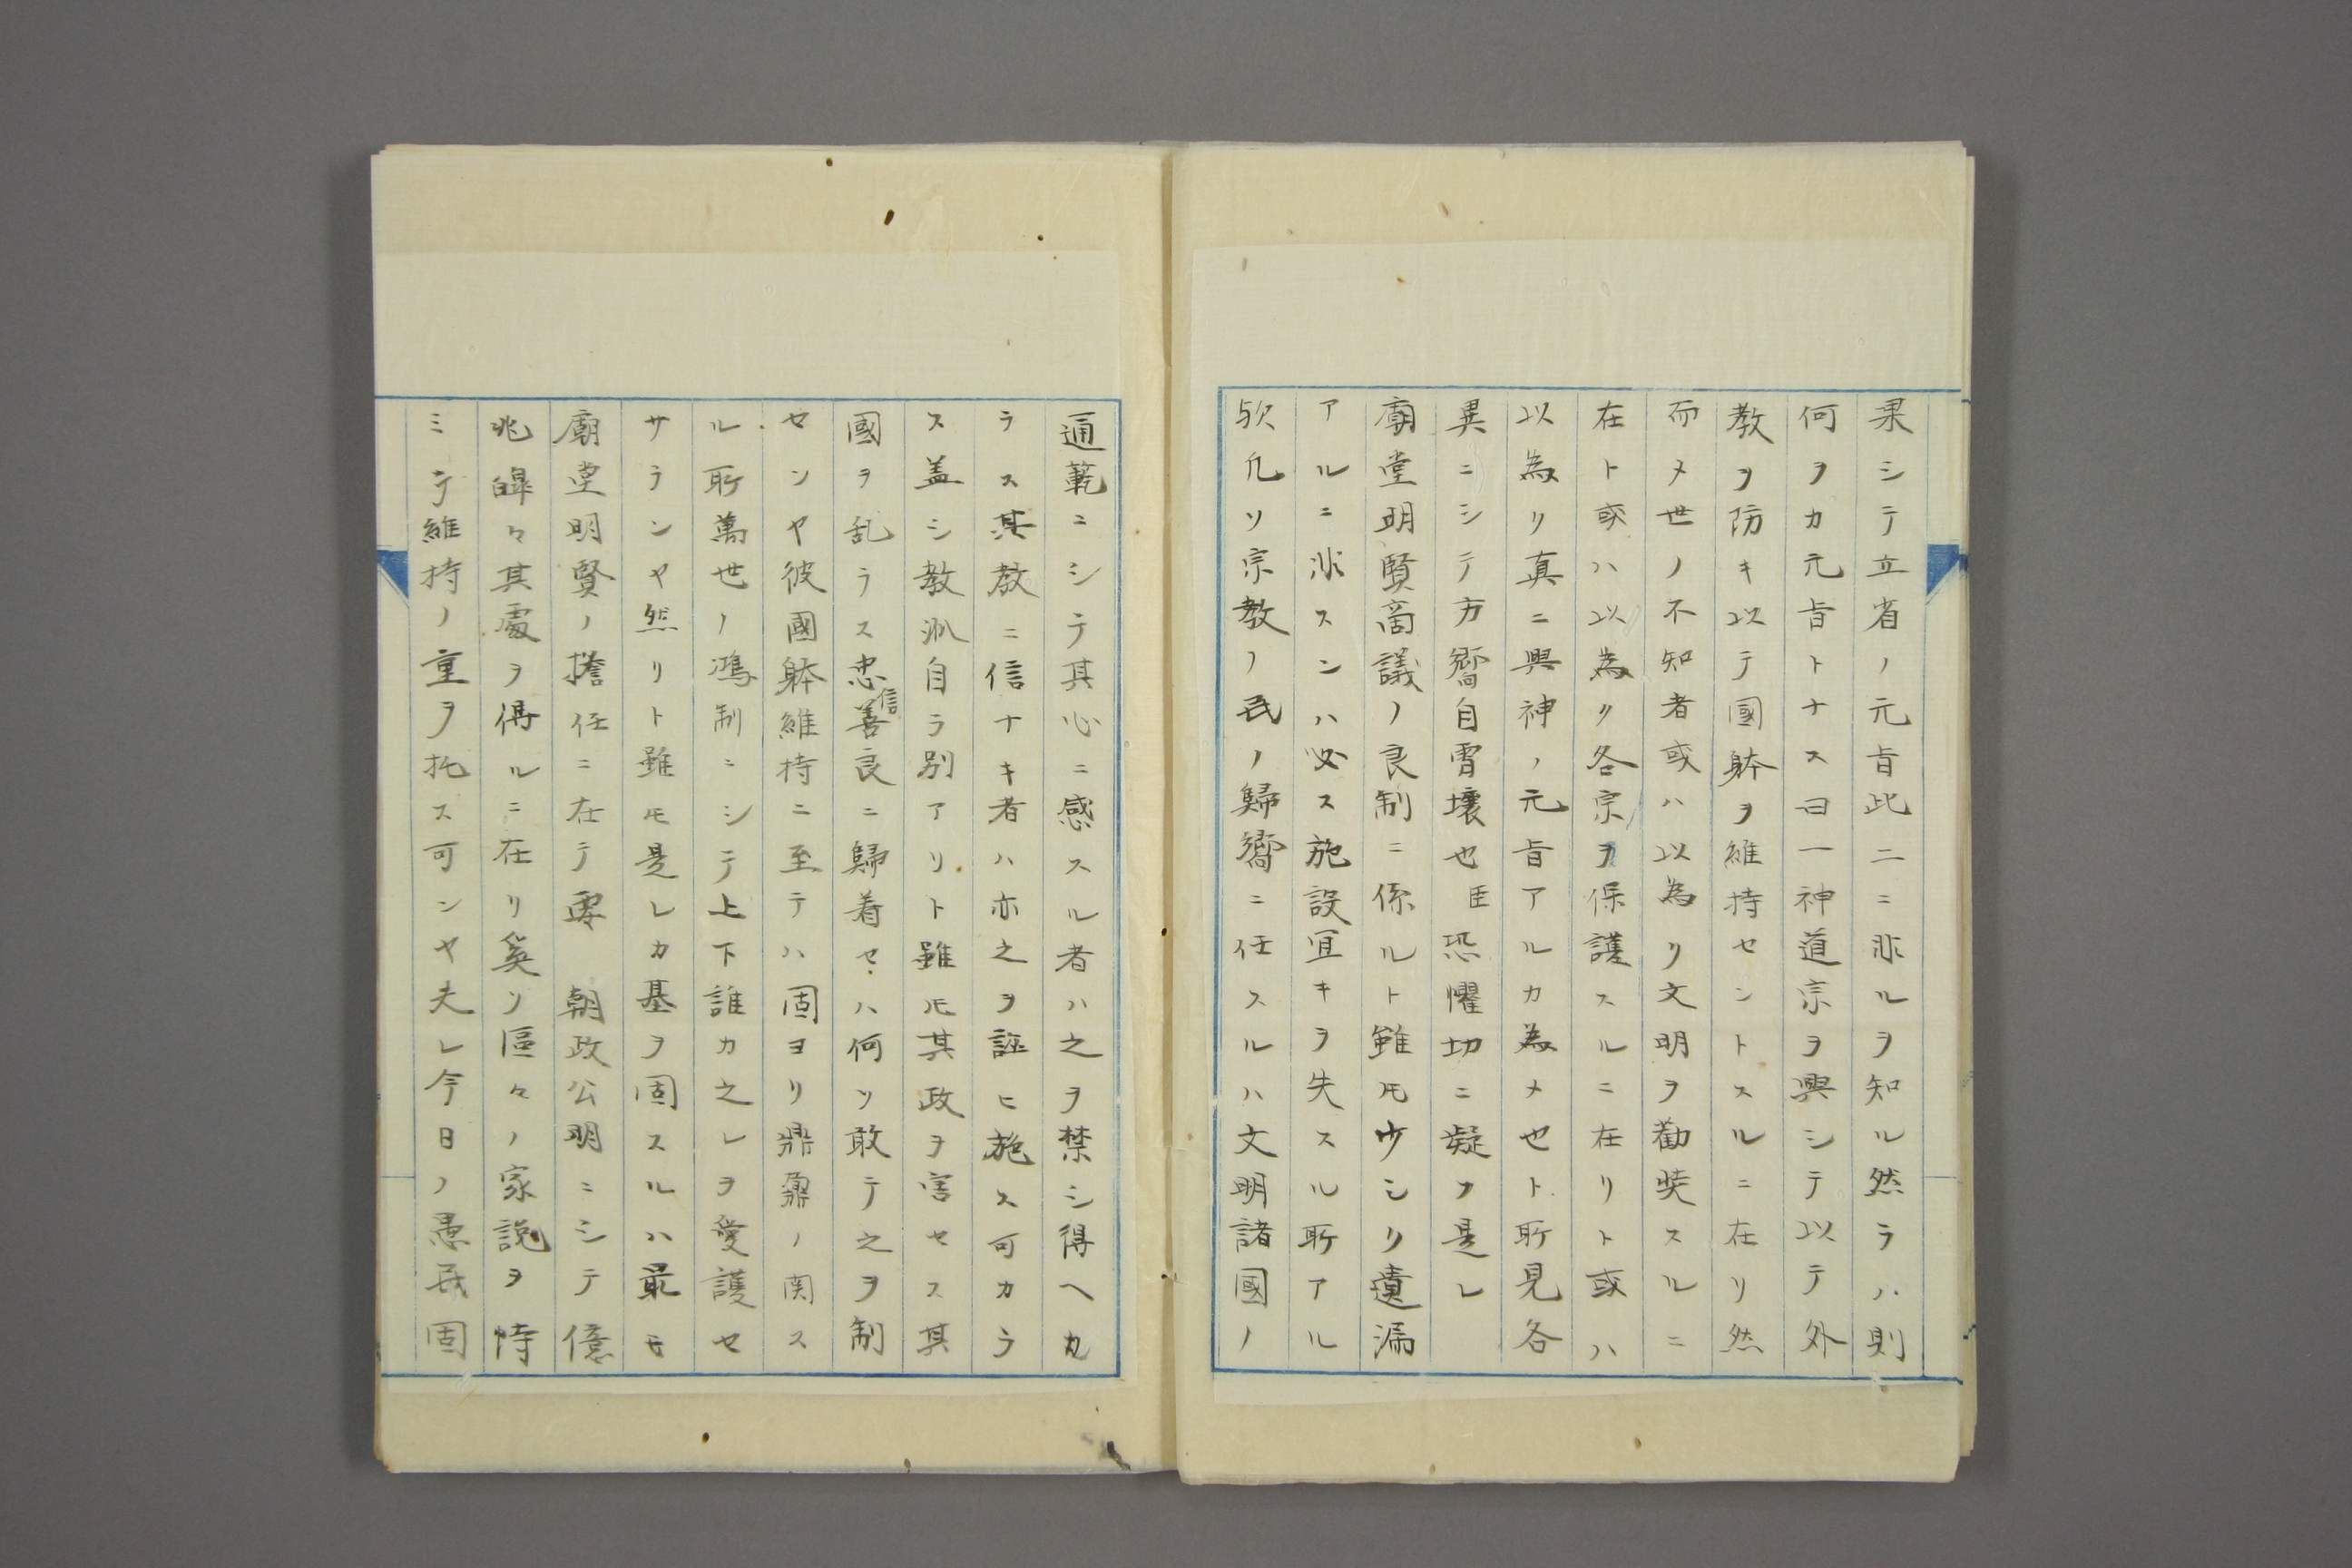 果シテ立省ノ元旨此二ニ非ルヲ知ル然ラハ則
何ヲカ元旨トナス曰一神道宗ヲ興シテ以テ外
教ヲ防キ以テ國躰ヲ維持セントスルニ在リ然
而メ世ノ不知者或ハ以為リ文明ヲ勧奘スルニ
在ト或ハ以為リ各宗ヲ保護スルニ在リト或ハ
以為リ真ニ興神ノ元旨アルカ為メせト所見各
異ニシテ方嚮自霄壌也臣恐懼切ニ凝フ是レ
廟堂明賢啇議ノ良制ニ係ルト雖モ少シリ遺漏
アルニ非スンハ必ス施設宜キヲ失スル所アル
欤凢ソ宗教ノ民ノ歸嚮ニ任スルハ文明諸國ノ
通範ニシテ其心ニ感スル者ハ之ヲ禁シ得ヘカ
ラス其教ニ信ナキ者ハ亦之ヲ誣ヒ施ス可カラ
ス盖シ教派自ラ別アリト雖モ其政ヲ害セス其
國ヲ乱ラス忠信善良ニ歸着セハ何ソ敢テ之ヲ制
センヤ彼國躰維持ニ至テハ固ヨリ鼎鼐ノ関ス
ル所萬世ノ鴻制ニシテ上下誰カ之レヲ愛護セ
サランヤ然リト雖モ是レカ基ヲ固スルハ最モ
廟堂明賢ノ擔任ニ在テ要 朝政公明ニシテ億
兆皥々其處ヲ得ルニ在リ奚ソ區々ノ家説ヲ恃
ミテ維持ノ重ヲ托ス可ンヤ夫レ今日ノ愚民固